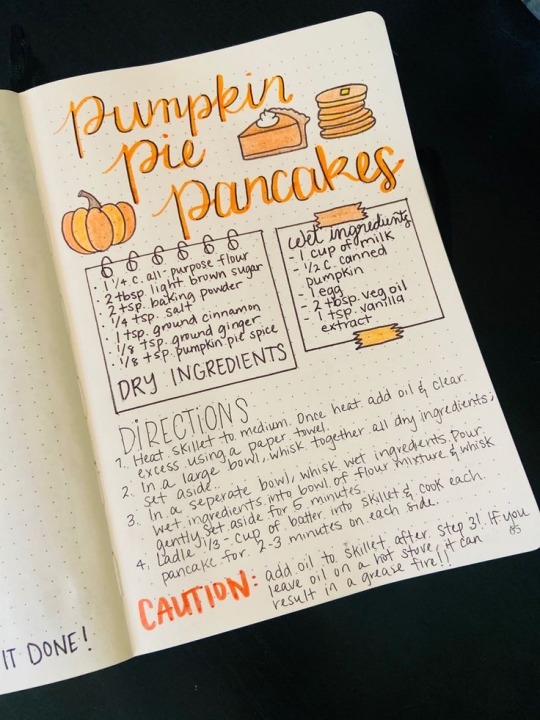 pumpkin
pie
pancakes
• 1 1/4 c. all-purpose flour
• 2 tbsp. light brown sugar
• 2 tsp. baking powder
• 1/4 tsp. salt
• 1 tsp. ground cinnamon
• 1/8 tsp. ground ginger
• 1/8 tsp. pumpkin pie spice
DRY INGREDIENTS
wet ingredients
- 1 cup of milk
- 1/2 c. canned
pumpkin
- 1 egg
- 2 tbsp. veg oil
- 1 tsp. vanilla
extract
DIRECTIONS
1. Heat skillet to medium. Once heat add oil & clear
excess using a paper towel.
2. In a large bowl, whisk together all dry ingredients;
set aside.
3. In a seperate bowl, whisk wet ingredients. Pour
wet ingredients into bowl of flour mixture & whisk
gently set aside for 5 minutes.
4. Ladle 1/3-cup of batter into skillet & cook each
pancake for 2-3 minutes on each side.
CAUTION: add oil to skillet after step 3! If you
leave oil on a hot stove, it can
result in a grease fire!!
85
IT DONE!